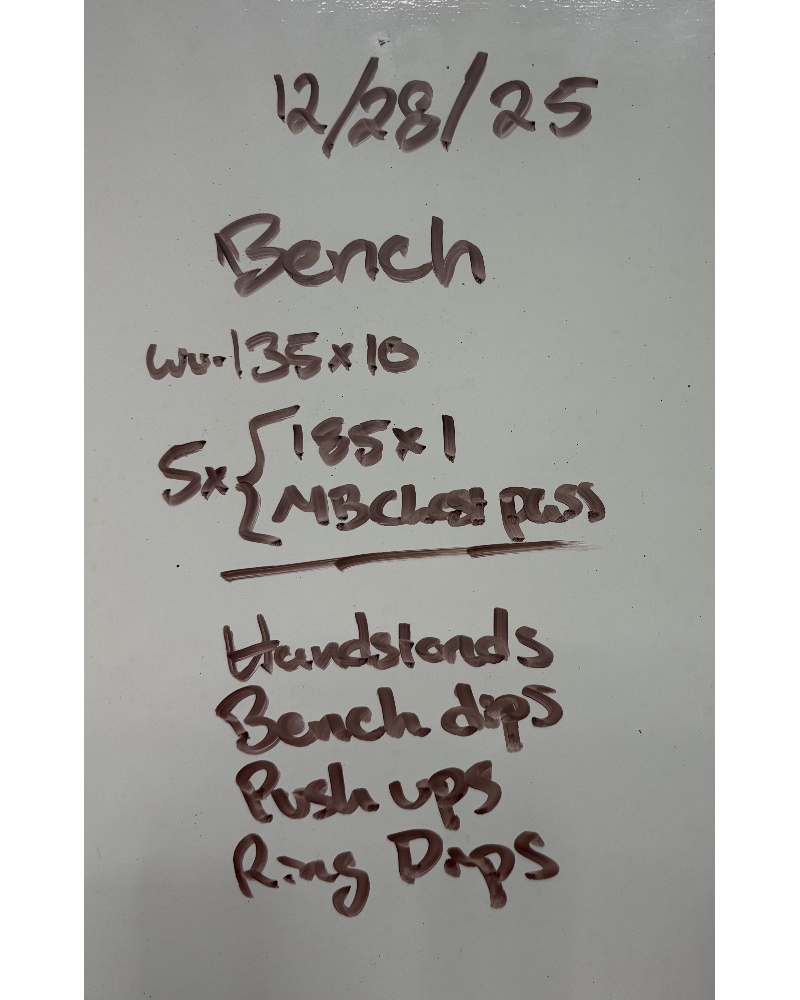 12/28/25
Bench
wu-135x10
5x{185x1
MB Chest pass
Handstands
Bench dips
Push ups
Ring Dips